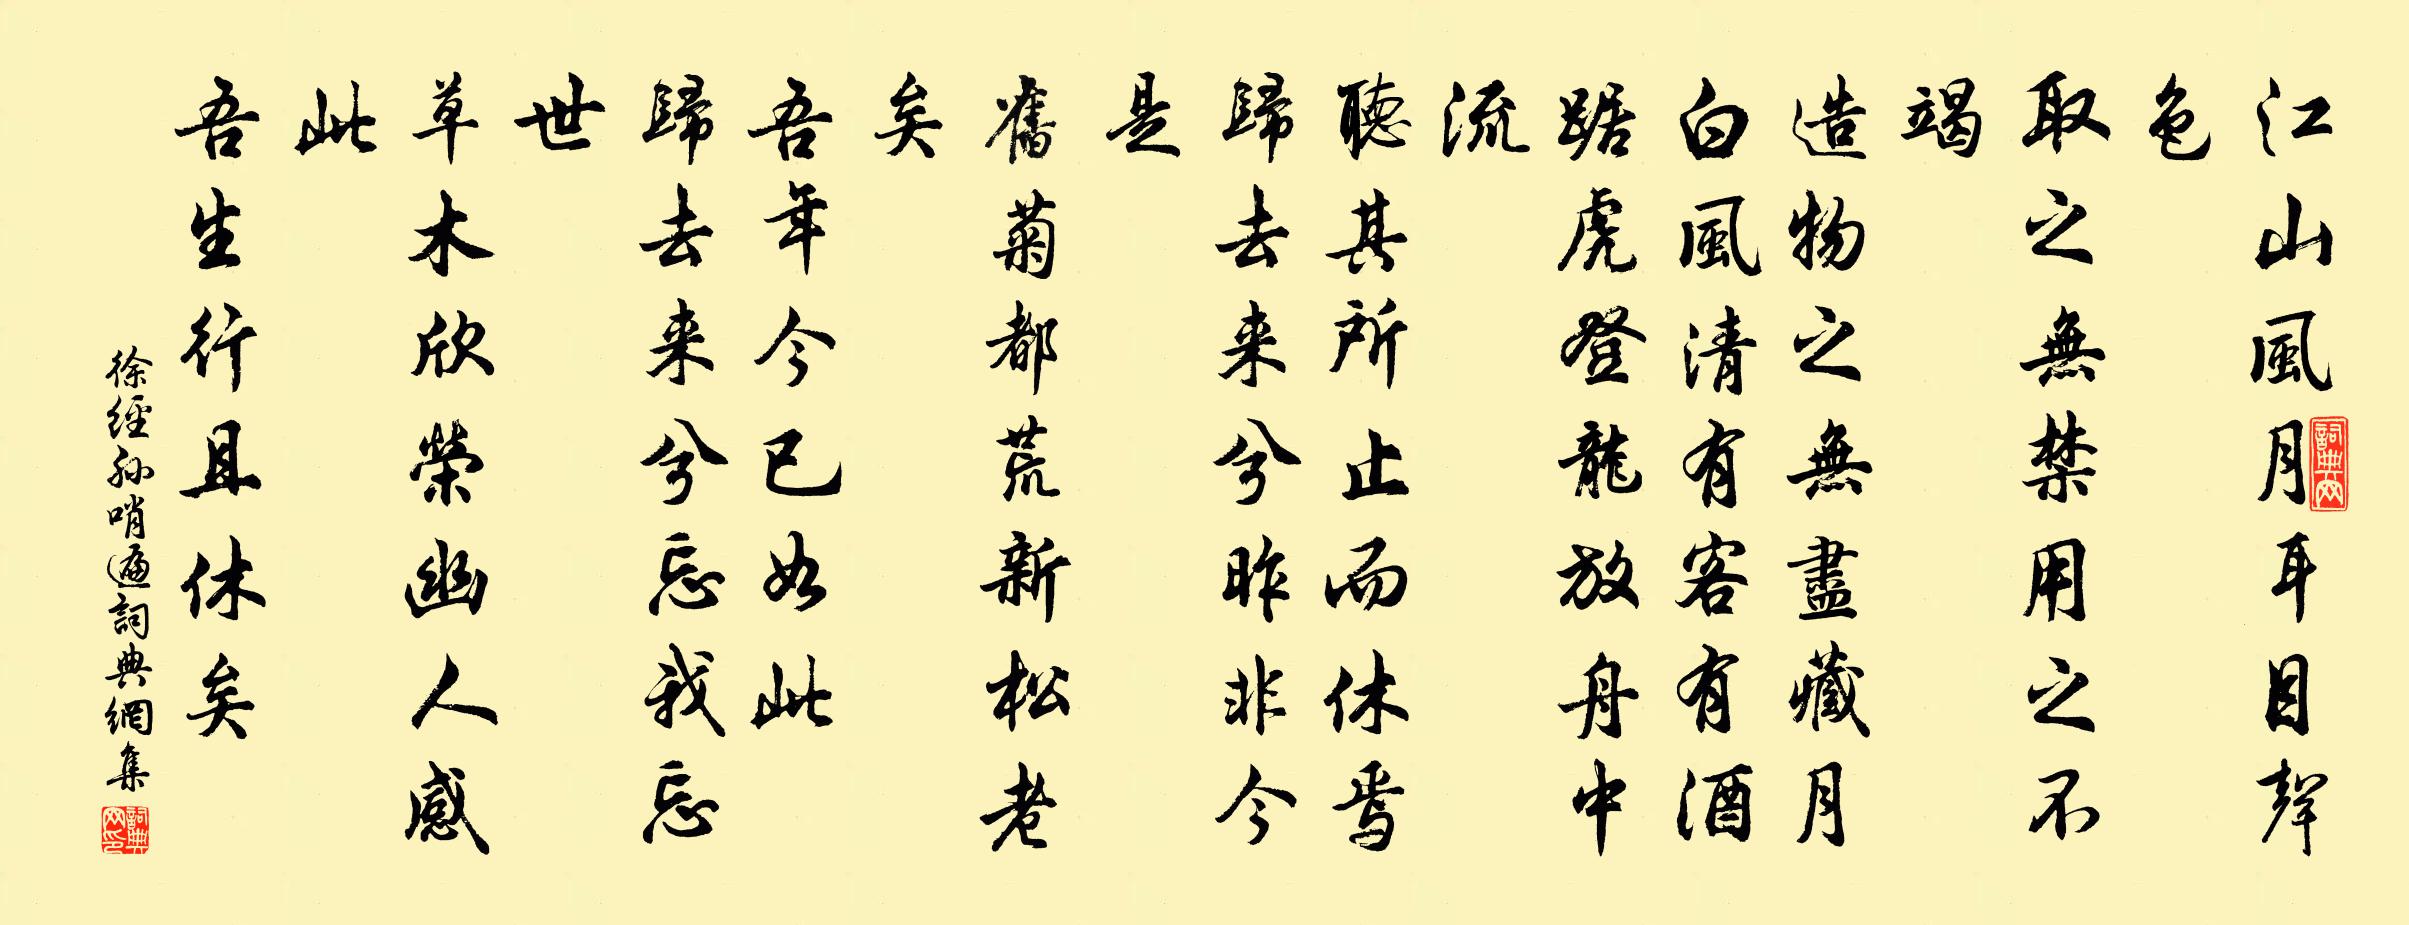 江山風月耳目聲
色
取之無禁用之不
竭
造物之無盡藏月
白風清有客有酒
踞虎登龍放舟中
流
聽其所止而休焉
歸去来兮昨非今
是
舊菊都荒新松老
矣
吾年今已如此
歸去来兮忘我忘
世
草木欣榮幽人感
此
吾生行且休矣
徐經孙哨遍詞典網集
詞典网
詞典网印